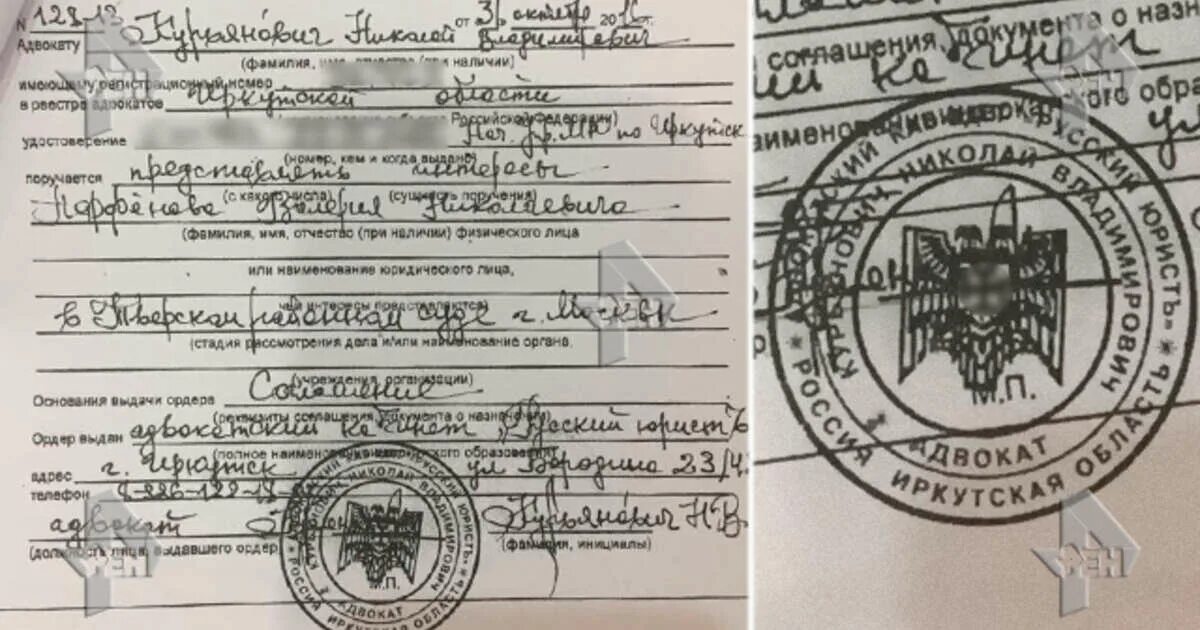 N 128-13 от 31 октября 2016 г.
Адвокату Курьянович Николай Владимирович
(фамилия, имя, отчество (при наличии)
имеющему регистрационный номер
в реестре адвокатов Иркутской области
Российской Федерации)
удостоверение Иркутск
(номер, кем и когда выдано)
поручается представлять интересы
(с какого числа) (сущность поручения)
Парфёнова Валерия Николаевича
(фамилия, имя, отчество (при наличии) физического лица
или наименование юридического лица,
чьи интересы представляются)
в Тверском районном суде г. Москвы
(стадия рассмотрения дела и/или наименование органа,
(учреждения, организации)
Основания выдачи ордера Соглашение
(реквизиты соглашения, документа о назначении)
Ордер выдан адвокатский кабинет "Русский юристъ"
(полное наименование адвокатского образования)
адрес г. Иркутск ул Бородина 23/4
телефон
адвокат Курьянович Н.В.
(должность лица, выдавшего ордер) (фамилия, инициалы)
НИКОЛАЙ ВЛАДИМИРОВИЧ
М.П.
АДВОКАТ
РОССИЯ ИРКУТСКАЯ ОБЛАСТЬ
РЕН
соглашения, документа о назн
ии кабинет
аименован
КАБИНЕТ "РУССКИЙ ЮРИСТЪ"
КУРЬЯНОВИЧ НИКОЛАЙ ВЛАДИМИРОВИЧ
М.П.
АДВОКАТ
* РОССИЯ ИРКУТСКАЯ ОБЛАСТЬ *
РЕН